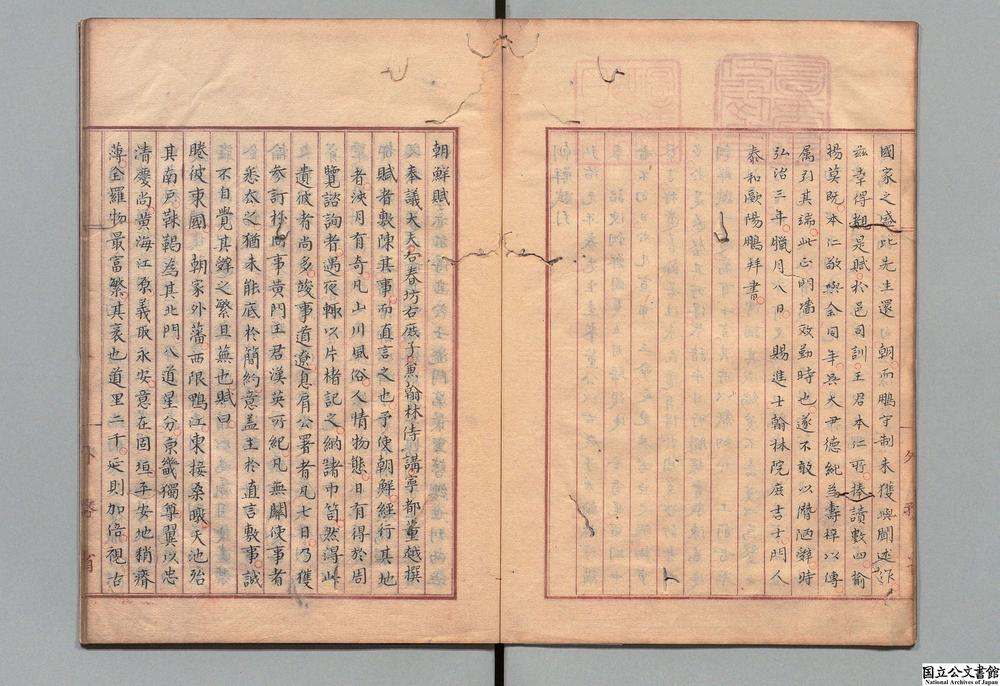 國家之盛此先生還 朝而鵬守制未獲與聞述作
茲幸得覩是賦於邑司訓王君本仁所捧讀數四揄
揚莫既本仁敬與余同年吳大尹德純為壽梓以傳
属引其端此正門墻效勤時也遂不敢以潛陋辭時
弘治三年臘月八日 賜進士翰林院庶吉士門人
泰和歐陽鵬拜書
朝鮮賦
奉議大夫右春坊右庶子兼翰林侍講寧都董越撰
賦者敷陳其事而直言之也予使朝鮮經行其地
者浹月有奇凡山川風俗人情物態日有得於周
覽諮詢者遇夜輙以片楮記之納諸巾笥然得此
遺彼者尚多竣事道遼息肩公署者凡七日乃獲
參訂於同事黃門王君漢英所紀凡無關使事者
悉去之猶未能底於簡約意盖主於直言敷事誠
不自覺其辭之繁且蕪也賦曰
睠彼東國 朝家外藩西限鴨江東接桑暾天池殆
其南戶靺鞨為其北門八道星分京畿獨尊翼以忠
清慶尚黄海江原義取永安意在固垣平安地稍瘠
薄全羅物最富繁其袤也道里二千延則加倍視古
国立公文書館
National Archives of Japan